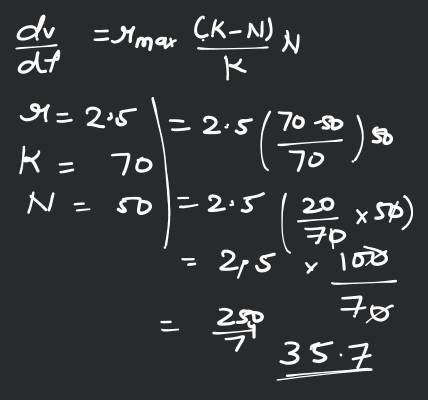 dv/dt = rmax (K-N)/K N
r = 2.5 = 2.5 (70-50/70) 50
K = 70
N = 50 = 2.5 (20/70 × 50)
= 2.5 × 100/70
= 250/7
35.7